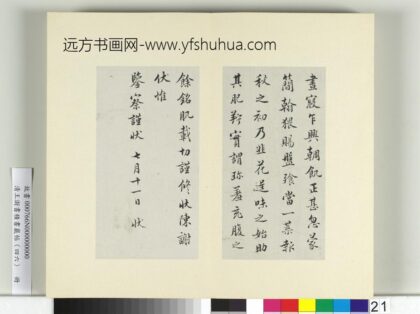 远方书画网-www.yfshuhua.com
晝寢乍興輖飢正甚忽蒙
簡翰猥賜盤飧當一葉報
秋之初乃韭花逞味之始助
其肥羜實謂珍羞充腹之
餘銘肌載切謹修狀陳謝
伏惟
鑒察謹狀 七月十一日 狀
21